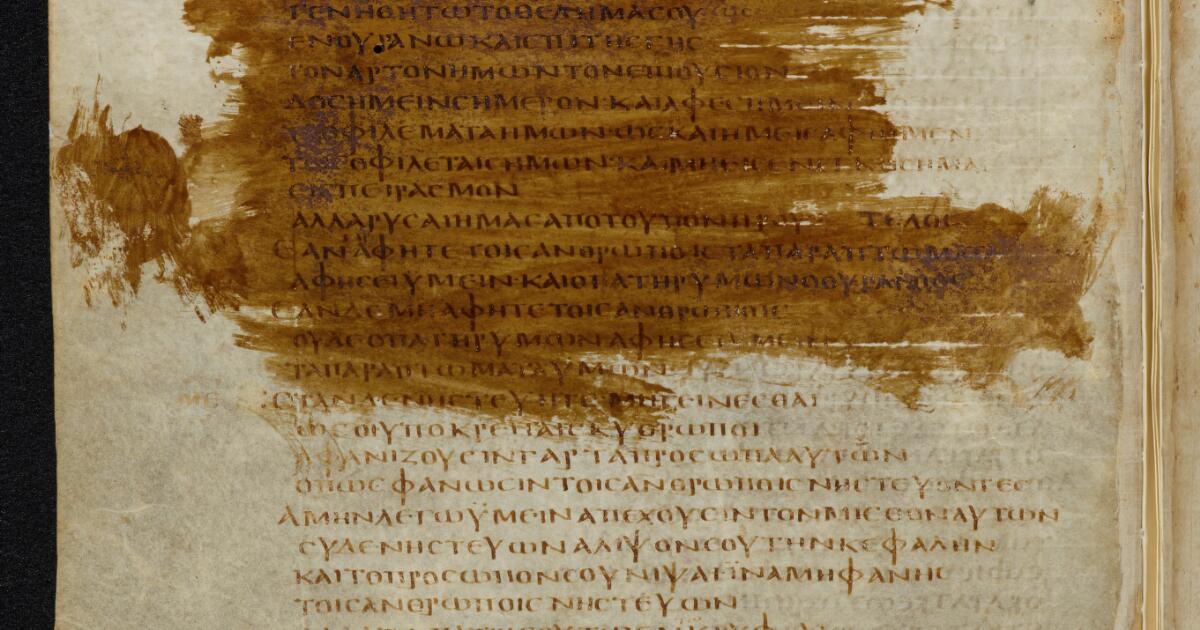 ΓΕΝΗΘΗΤΩΤΟΘΕΛΗΜΑΣΟΥ
ΕΝΟΥΡΑΝΩΚΑΙΕΠΙΤΗΣΓΗΣ
ΤΟΝΑΡΤΟΝΗΜΩΝΤΟΝΕΠΙΟΥΣΙΟΝ
ΔΟΣΗΜΕΙΝΣΗΜΕΡΟΝ·ΚΑΙΑΦΕΣΗΜ
ΟΦΙΛΕΜΑΤΑΗΜΩΝ·ΩΣΚΑΙΗΜΕΙΣΑΦ
ΤΟΙΣΟΦΙΛΕΤΑΙΣΗΜΩΝ·ΚΑΙΜΗ
ΕΙΣΠΕΙΡΑΣΜΟΝ
ΑΛΛΑΡΥΣΑΙΗΜΑΣΑΠΟΤΟΥΠΟΝΗΡΟΥ ΤΕΛΟΣ
ΕΑΝΑΦΗΤΕΤΟΙΣΑΝΘΡΩΠΟΙΣΤΑΠΑΡΑΠΤΩΜΑΤΑ
ΑΦΗΣΕΙΥΜΕΙΝ·ΚΑΙΟΠΑΤΗΡΥΜΩΝΟΟΥΡΑΝΙΟΣ
ΕΑΝΔΕΜΗΑΦΗΤΕΤΟΙΣΑΝΘΡΩΠΟΙΣ
ΟΥΔΕΟΠΑΤΗΡΥΜΩΝΑΦΗΣΕΙΥΜΕΙΝ
ΤΑΠΑΡΑΠΤΩΜΑΤΑΥΜΩΝ
ΜΕ ΟΤΑΝΔΕΝΗΣΤΕΥΗΤΕ·ΜΗΓΕΙΝΕΣΘΑΙ
ΩΣΟΙΥΠΟΚΡΕΙΤΑΙΣΚΥΘΡΩΠΟΙ
ΑΦΑΝΙΖΟΥΣΙΝΓΑΡΤΑΠΡΟΣΩΠΑΑΥΤΩΝ
ΟΠΩΣΦΑΝΩΣΙΝΤΟΙΣΑΝΘΡΩΠΟΙΣΝΗΣΤΕΥΟΝΤΕΣ
ΑΜΗΝΛΕΓΩΫΜΕΙΝΑΠΕΧΟΥΣΙΝΤΟΝΜΙΣΘΟΝΑΥΤΩΝ
ΣΥΔΕΝΗΣΤΕΥΩΝΑΛΙΨΟΝΣΟΥΤΗΝΚΕΦΑΛΗΝ
ΚΑΙΤΟΠΡΟΣΩΠΟΝΣΟΥΝΙΨΑΙΪΝΑΜΗΦΑΝΗΣ
ΤΟΙΣΑΝΘΡΩΠΟΙΣΝΗΣΤΕΥΩΝ